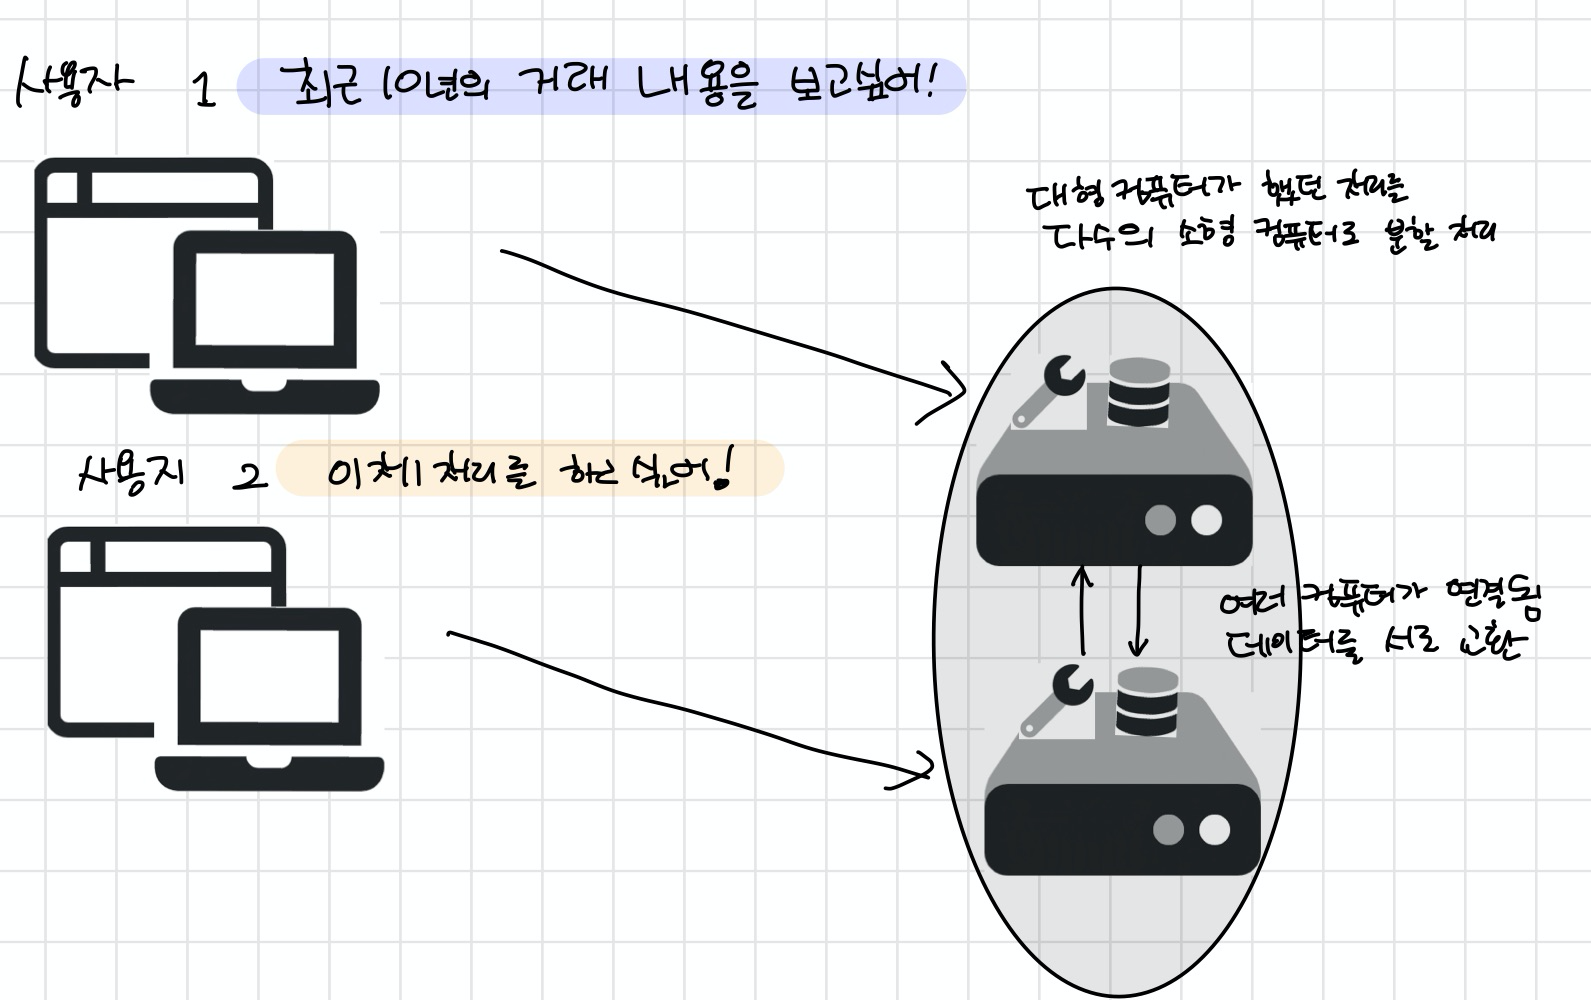 사용자 1 최근 10년의 거래 내용을 보고싶어!
대형 컴퓨터가 했던 처리를
다수의 소형 컴퓨터로 분할 처리
사용자 2 이체 처리를 하고 싶어!
여러 컴퓨터가 연결됨
데이터를 서로 교환